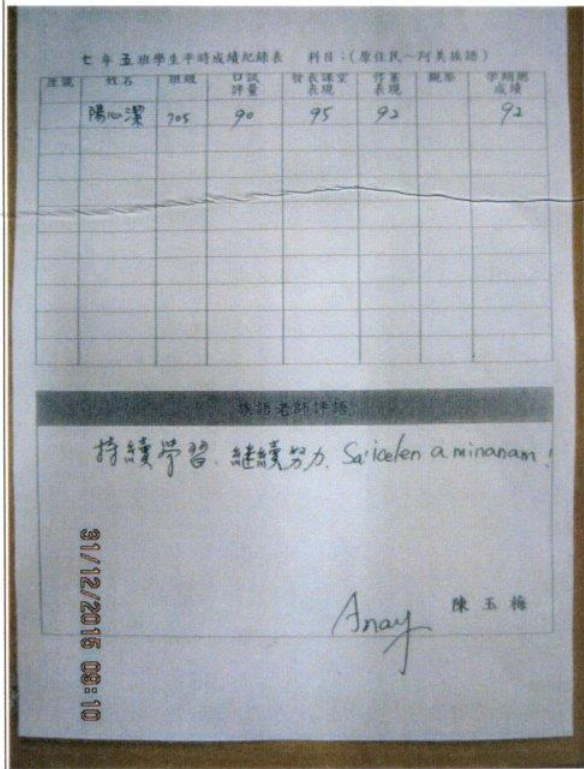 七年五班學生平時成績紀錄表 科目:(原住民~阿美族語)
座號 姓名 班級 口試評量 發表課堂表現 作業表現 觀察 學期總成績
陽心潔 705 90 95 92 92
族語老師評語
持續學習. 継續努力. Sa'icelen a minanam!
Anay 陳玉梅
31/12/2015 09:10